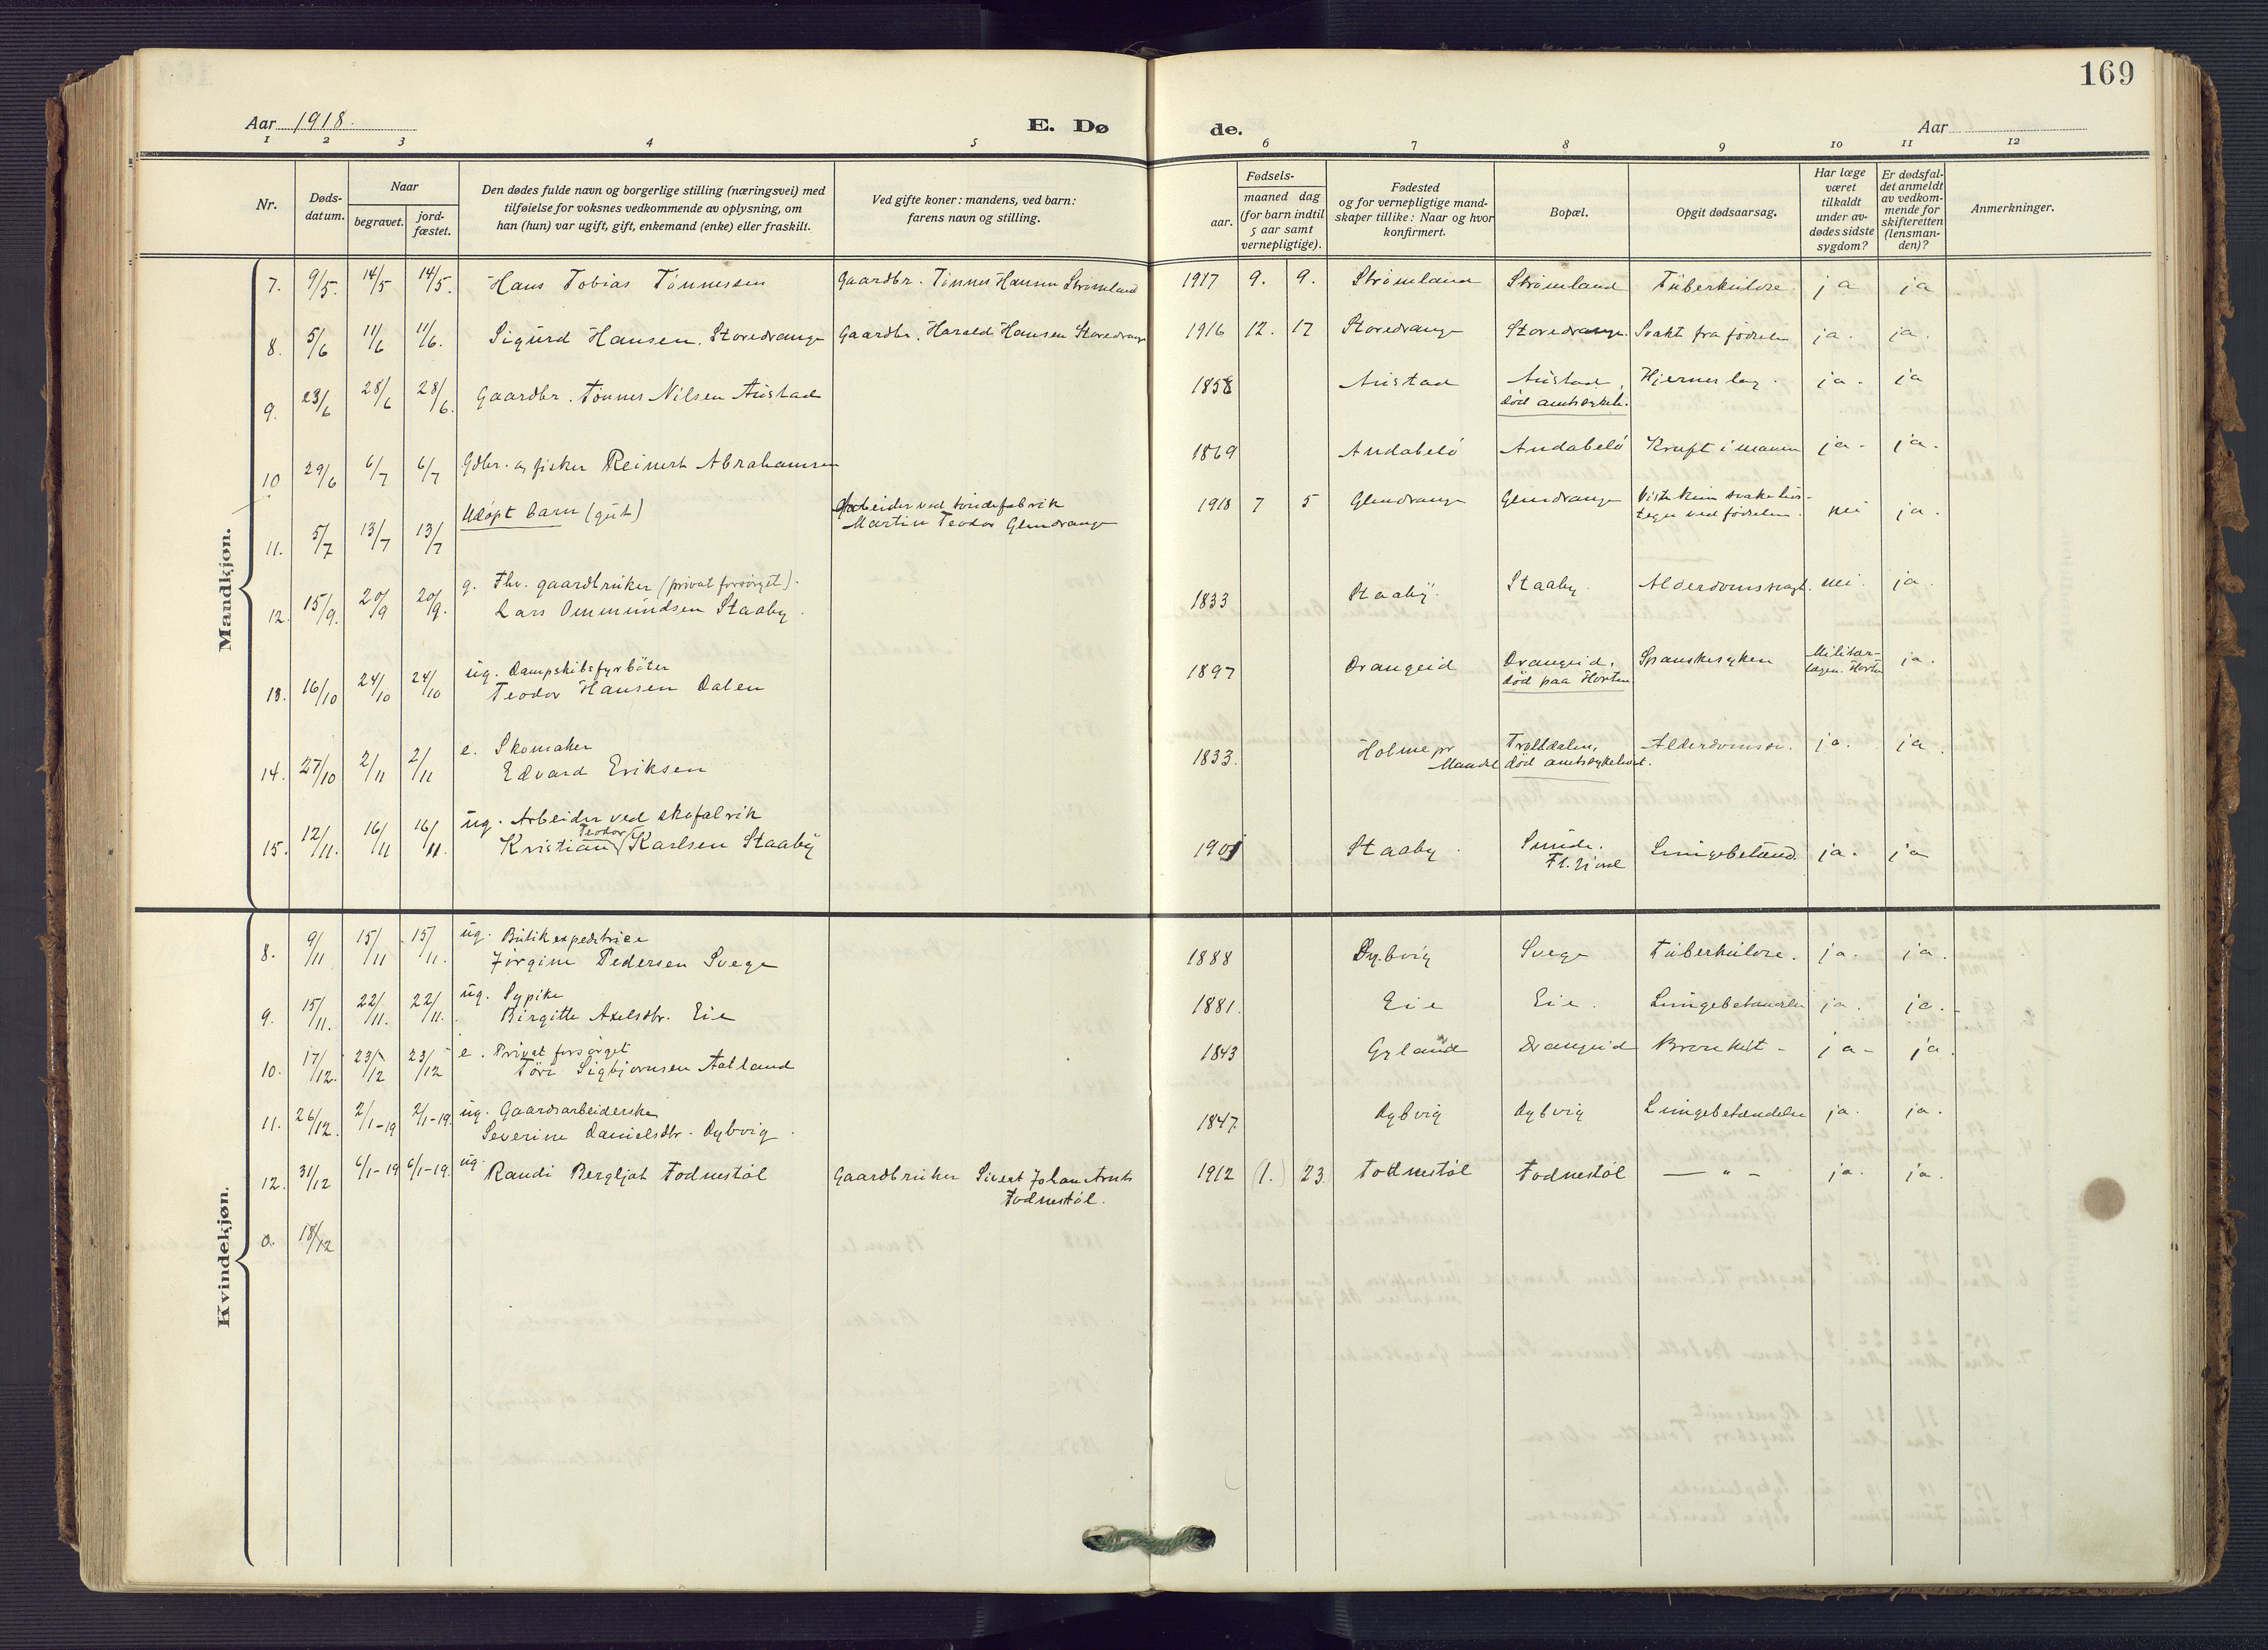 169
Aar 1918.
E. Dø
de.
Aar
1 2 3 4 5 6 7 8 9 10 11 12
Nr.
Døds-
datum.
Naar
begravet.
jord-
fæstet.
Den dødes fulde navn og borgerlige stilling (næringsvei) med
tilføielse for voksnes vedkommende av oplysning, om
han (hun) var ugift, gift, enkemand (enke) eller fraskilt.
Ved gifte koner: mandens, ved barn:
farens navn og stilling.
Fødsels-
aar.
maaned dag
(for barn indtil
5 aar samt
vernepligtige).
Fødested
og for vernepligtige mand-
skaper tillike: Naar og hvor
konfirmert.
Bopæl.
Opgit dødsaarsag.
Har læge
været
tilkaldt
under av-
dødes sidste
sygdom?
Er dødsfal-
det anmeldt
av vedkom-
mende for
skifteretten
(lensman-
den)?
Anmerkninger.
Maandkjøn.
7. 9/5. 14/5 14/5. Hans Tobias Tønnessen Gaardbr. Tønnes Hansen Strømland 1917 9. 9. Strømland Strømland Tüberkülose ja ja
8. 5/6 11/6 11/6. Sigürd Hansen. Storedrange Gaardbr. Harald Hansen Storedrange 1916 12. 17 Storedrange Storedrange. Svakt fra fødselen ja. ja.
9. 23/6 28/6 28/6. Gaardbr. Tønnes Nilsen Aüstad 1858 Aüstad Aüstad, Hjerneslag. ja. ja
død amtssykeh.
10 29/6 6/7 6/7 Gdbr. og fisker Reinert Abrahamsen 1869 Andabelö Andabelö Kræft i maven ja. ja.
11. 5/7 13/7 13/7 Udøpt barn (güt) Arbeider ved tøndefabrik
Martin Teodor Glendrange 1918 7 5 Glendrange Glendrange Viste kün svake livs-
tegn ved fødselen. nei ja.
12. 15/9. 20/9 20/9. g. Fhv. gaardbrüker (privat forsørget).
Lars Ommündsen Staaby. 1833 Staaby. Staaby. Alderdomssvagh. nei. ja.
13. 16/10 24/10 24/10 üg. Dampskibsfyrbøter
Teodor Hansen Dalen 1897 Drangeid Drangeid,
død paa Horten Spanskesyken Militær-
lægen Horten ja.
14. 27/10 2/11 2/11 e. Skomaker
Edvard Eriksen 1833. Holme pr
Mandal Trolldalen,
død amtssykehuset. Alderdomssv. ja. ja.
15. 12/11. 16/11 16/11. üg. Arbeider ved skofabrik
Teodor
Kristian Karlsen Staaby 1901 Staaby. Sünde.
Fl. Lüngebetænd. ja. ja
Kvindekjøn.
8. 9/11 15/11 15/11. üg. Bütikexpeditrice
Jørgine Pedersen Svege 1888 Dybvig Svege Tüberkülose. ja. ja.
9. 15/11. 22/11. 22/11. üg. Sypike
Birgitte Axelsdtr. Eie 1881. Eie Eie. Lüngebetændelse ja. ja.
10. 17/12. 23/12 23/12 e. Privat forsørget
Tori Sigbjørnsen Aatland 1843 Gyland Drangeid Bronkit - ja - ja.
11. 26/12. 2/1-19 2/1-19. üg. Gaardsarbeiderske
Severine Danielsdtr. Dybvig. 1847. Dybvig Dybvig Lüngebetændelse ja. ja.
12. 31/12 6/1-19 6/1-19. üg. Randi Bergljot Fodnestøl Gaardbrüker Sivert Johan Arnts
Fodnestøl. 1912 (1.) 23. Fodnestøl Fodnestøl — " — ja. ja.
0. 18/12